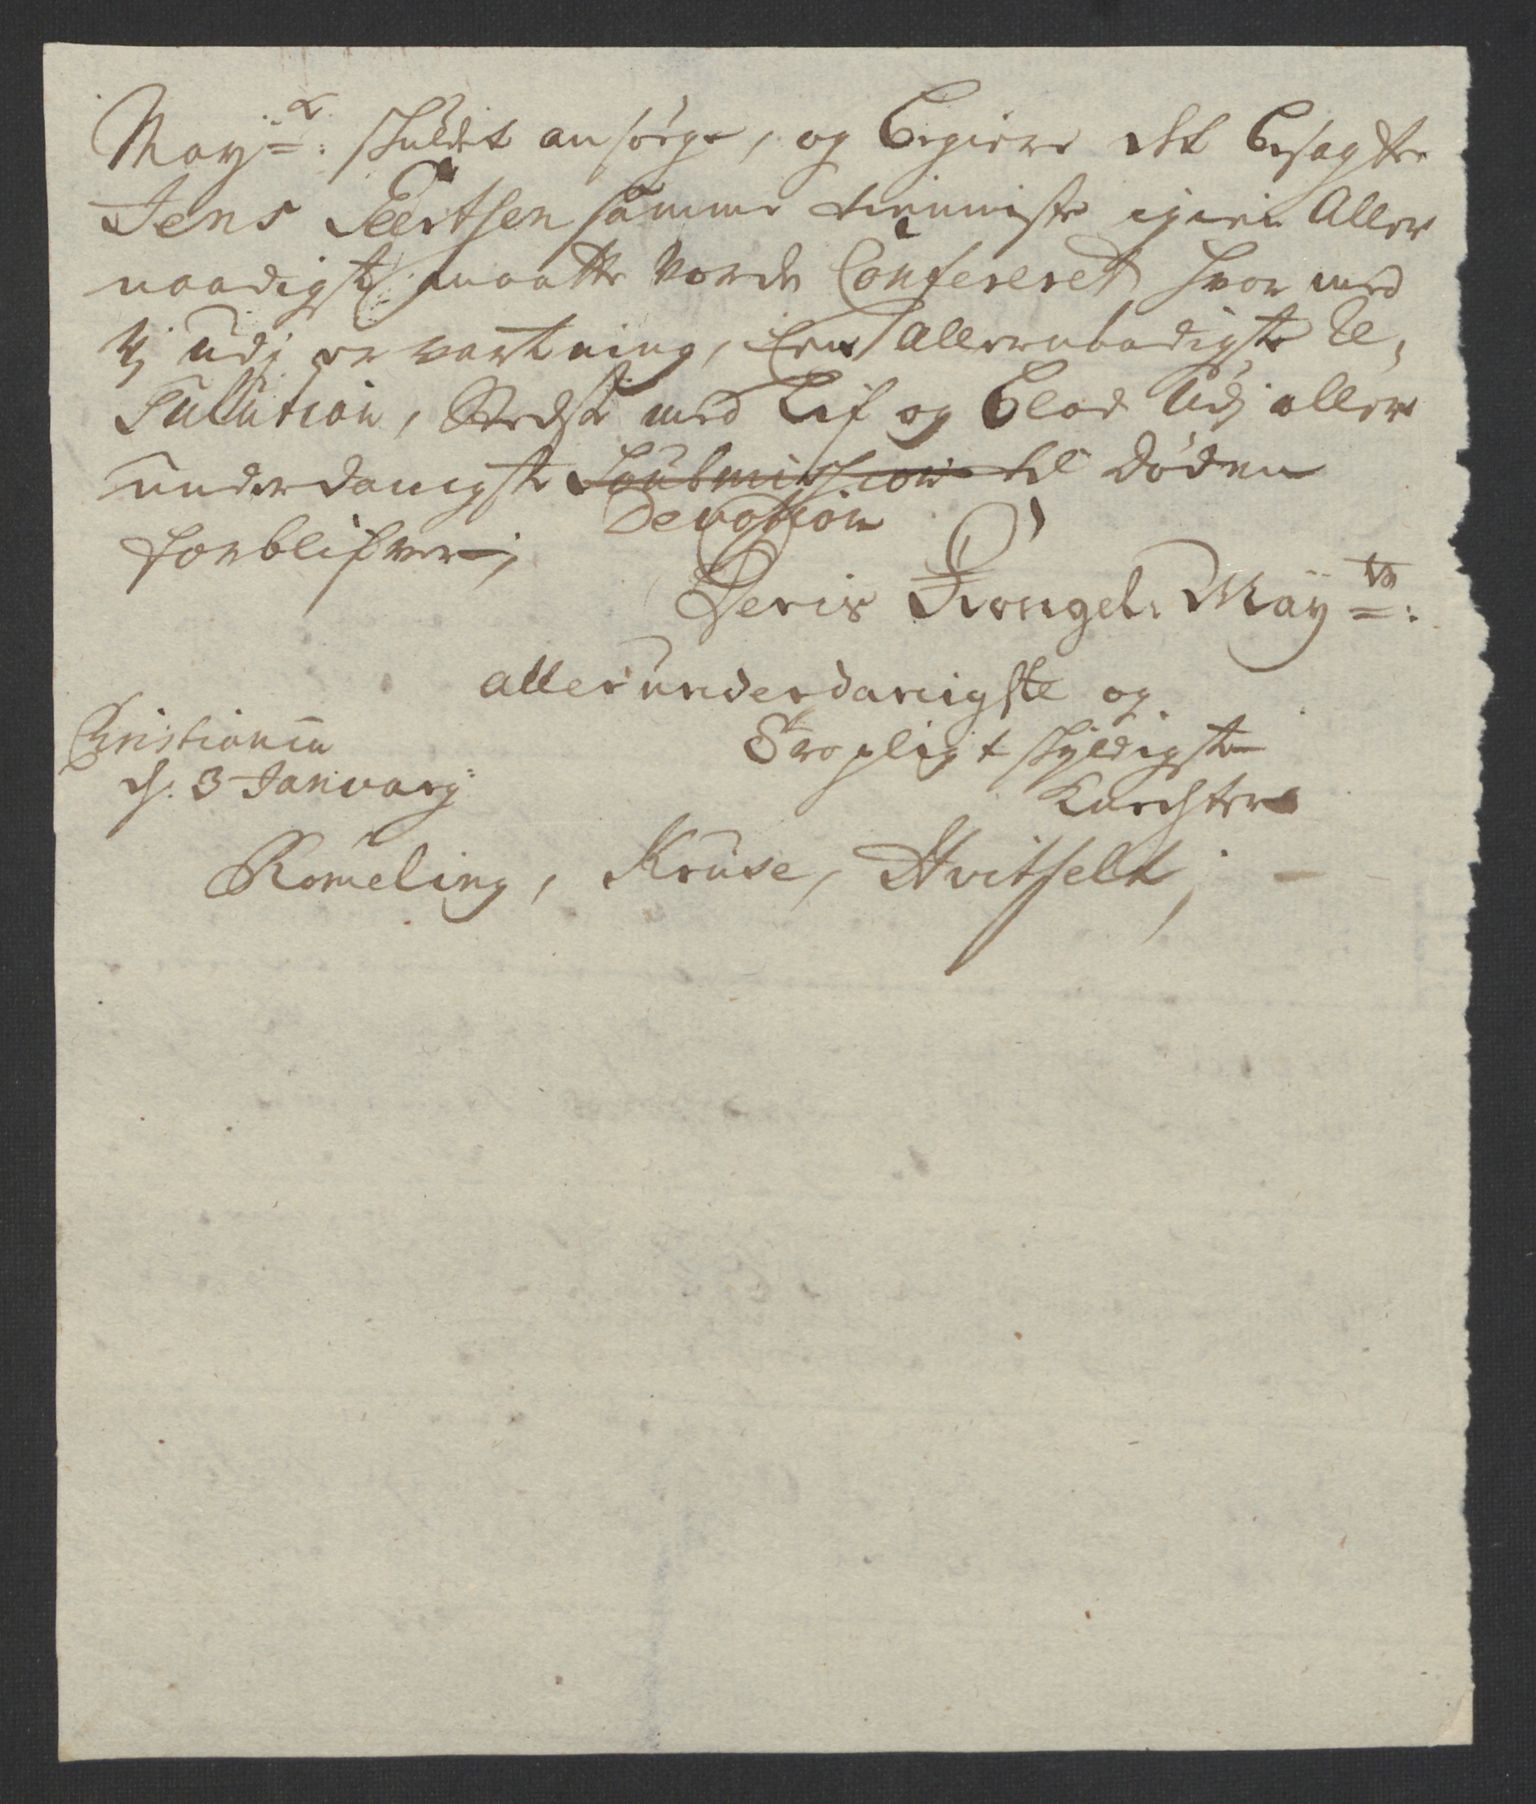 May.r: skuldet ansøge, og begiere det besagte
Jens Peertsen samme tienniste igien Aller
naadigst maatte vorde Confereret, hvor med
Vj udj er vartning, Een Allernaadigste Re,
Sullution, Stedse med Lif og Blod Udj aller
underdanigste Soubmission til døden
Devotion
forblifver;
Deris Kongel. Mayts:
allerunderdanigste og
Troepligt skyldigste
Knechter
Christiania
d. 3 Januarij
Römeling, Kruse, Hvitfeldt;